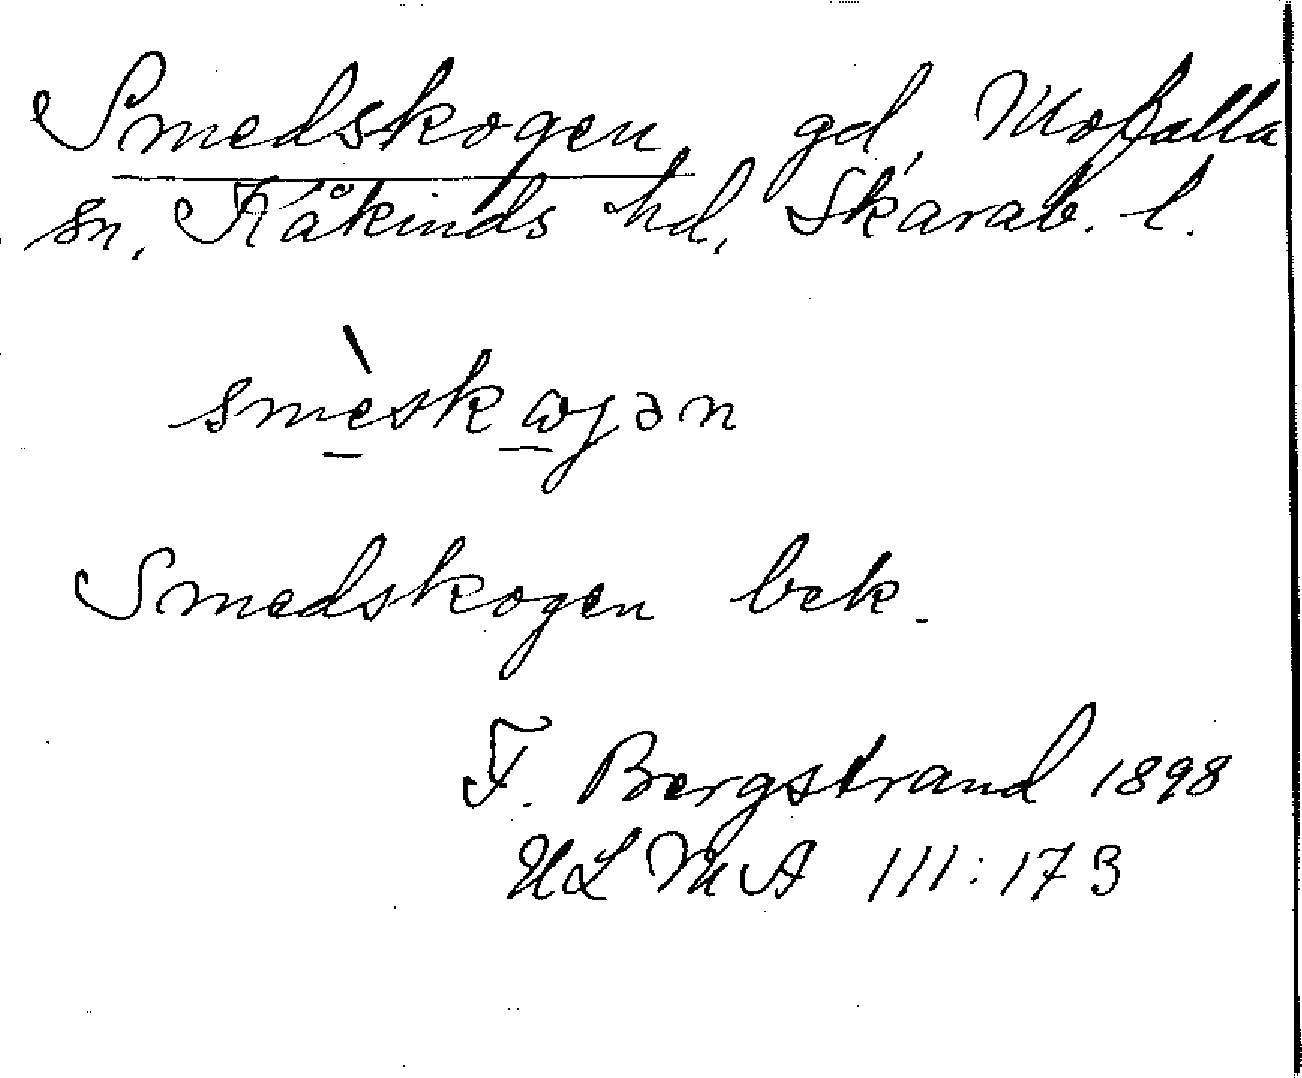 Smedskogen, gd, Mofalla
sn, Kåkinds hd, Skarab. l.
smèskωjən
Smedskogen bek.
F. Bergstrand 1898
ULMA 111:173